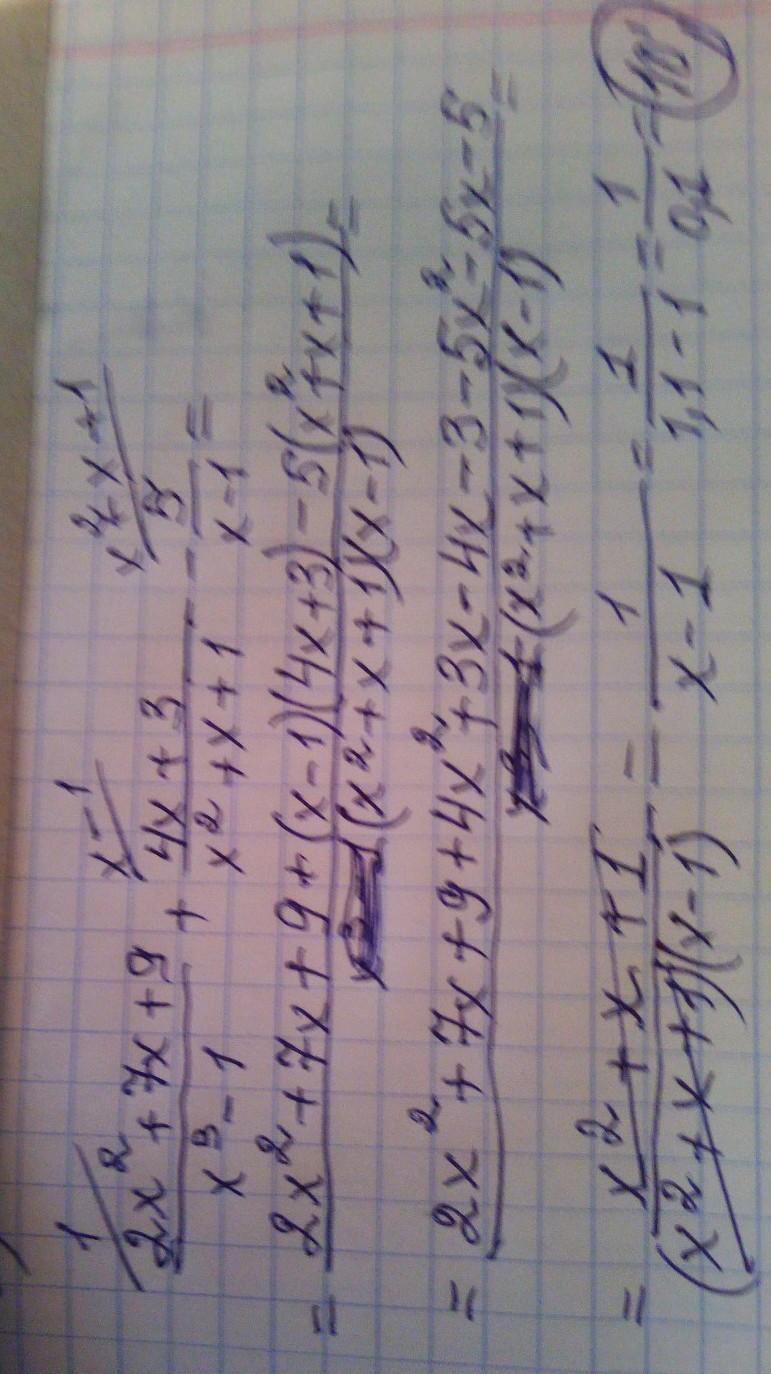 1 x-1 x²+x+1
2x²+7x+9 / x³-1 + 4x+3 / x²+x+1 - 5 / x-1 =
= 2x²+7x+9+(x-1)(4x+3)-5(x²+x+1) / (x²+x+1)(x-1) =
= 2x²+7x+9+4x²+3x-4x-3-5x²-5x-5 / (x²+x+1)(x-1) =
= x²+x+1 / (x²+x+1)(x-1) = 1 / x-1 = 1 / 1,1-1 = 1 / 0,1 = 10